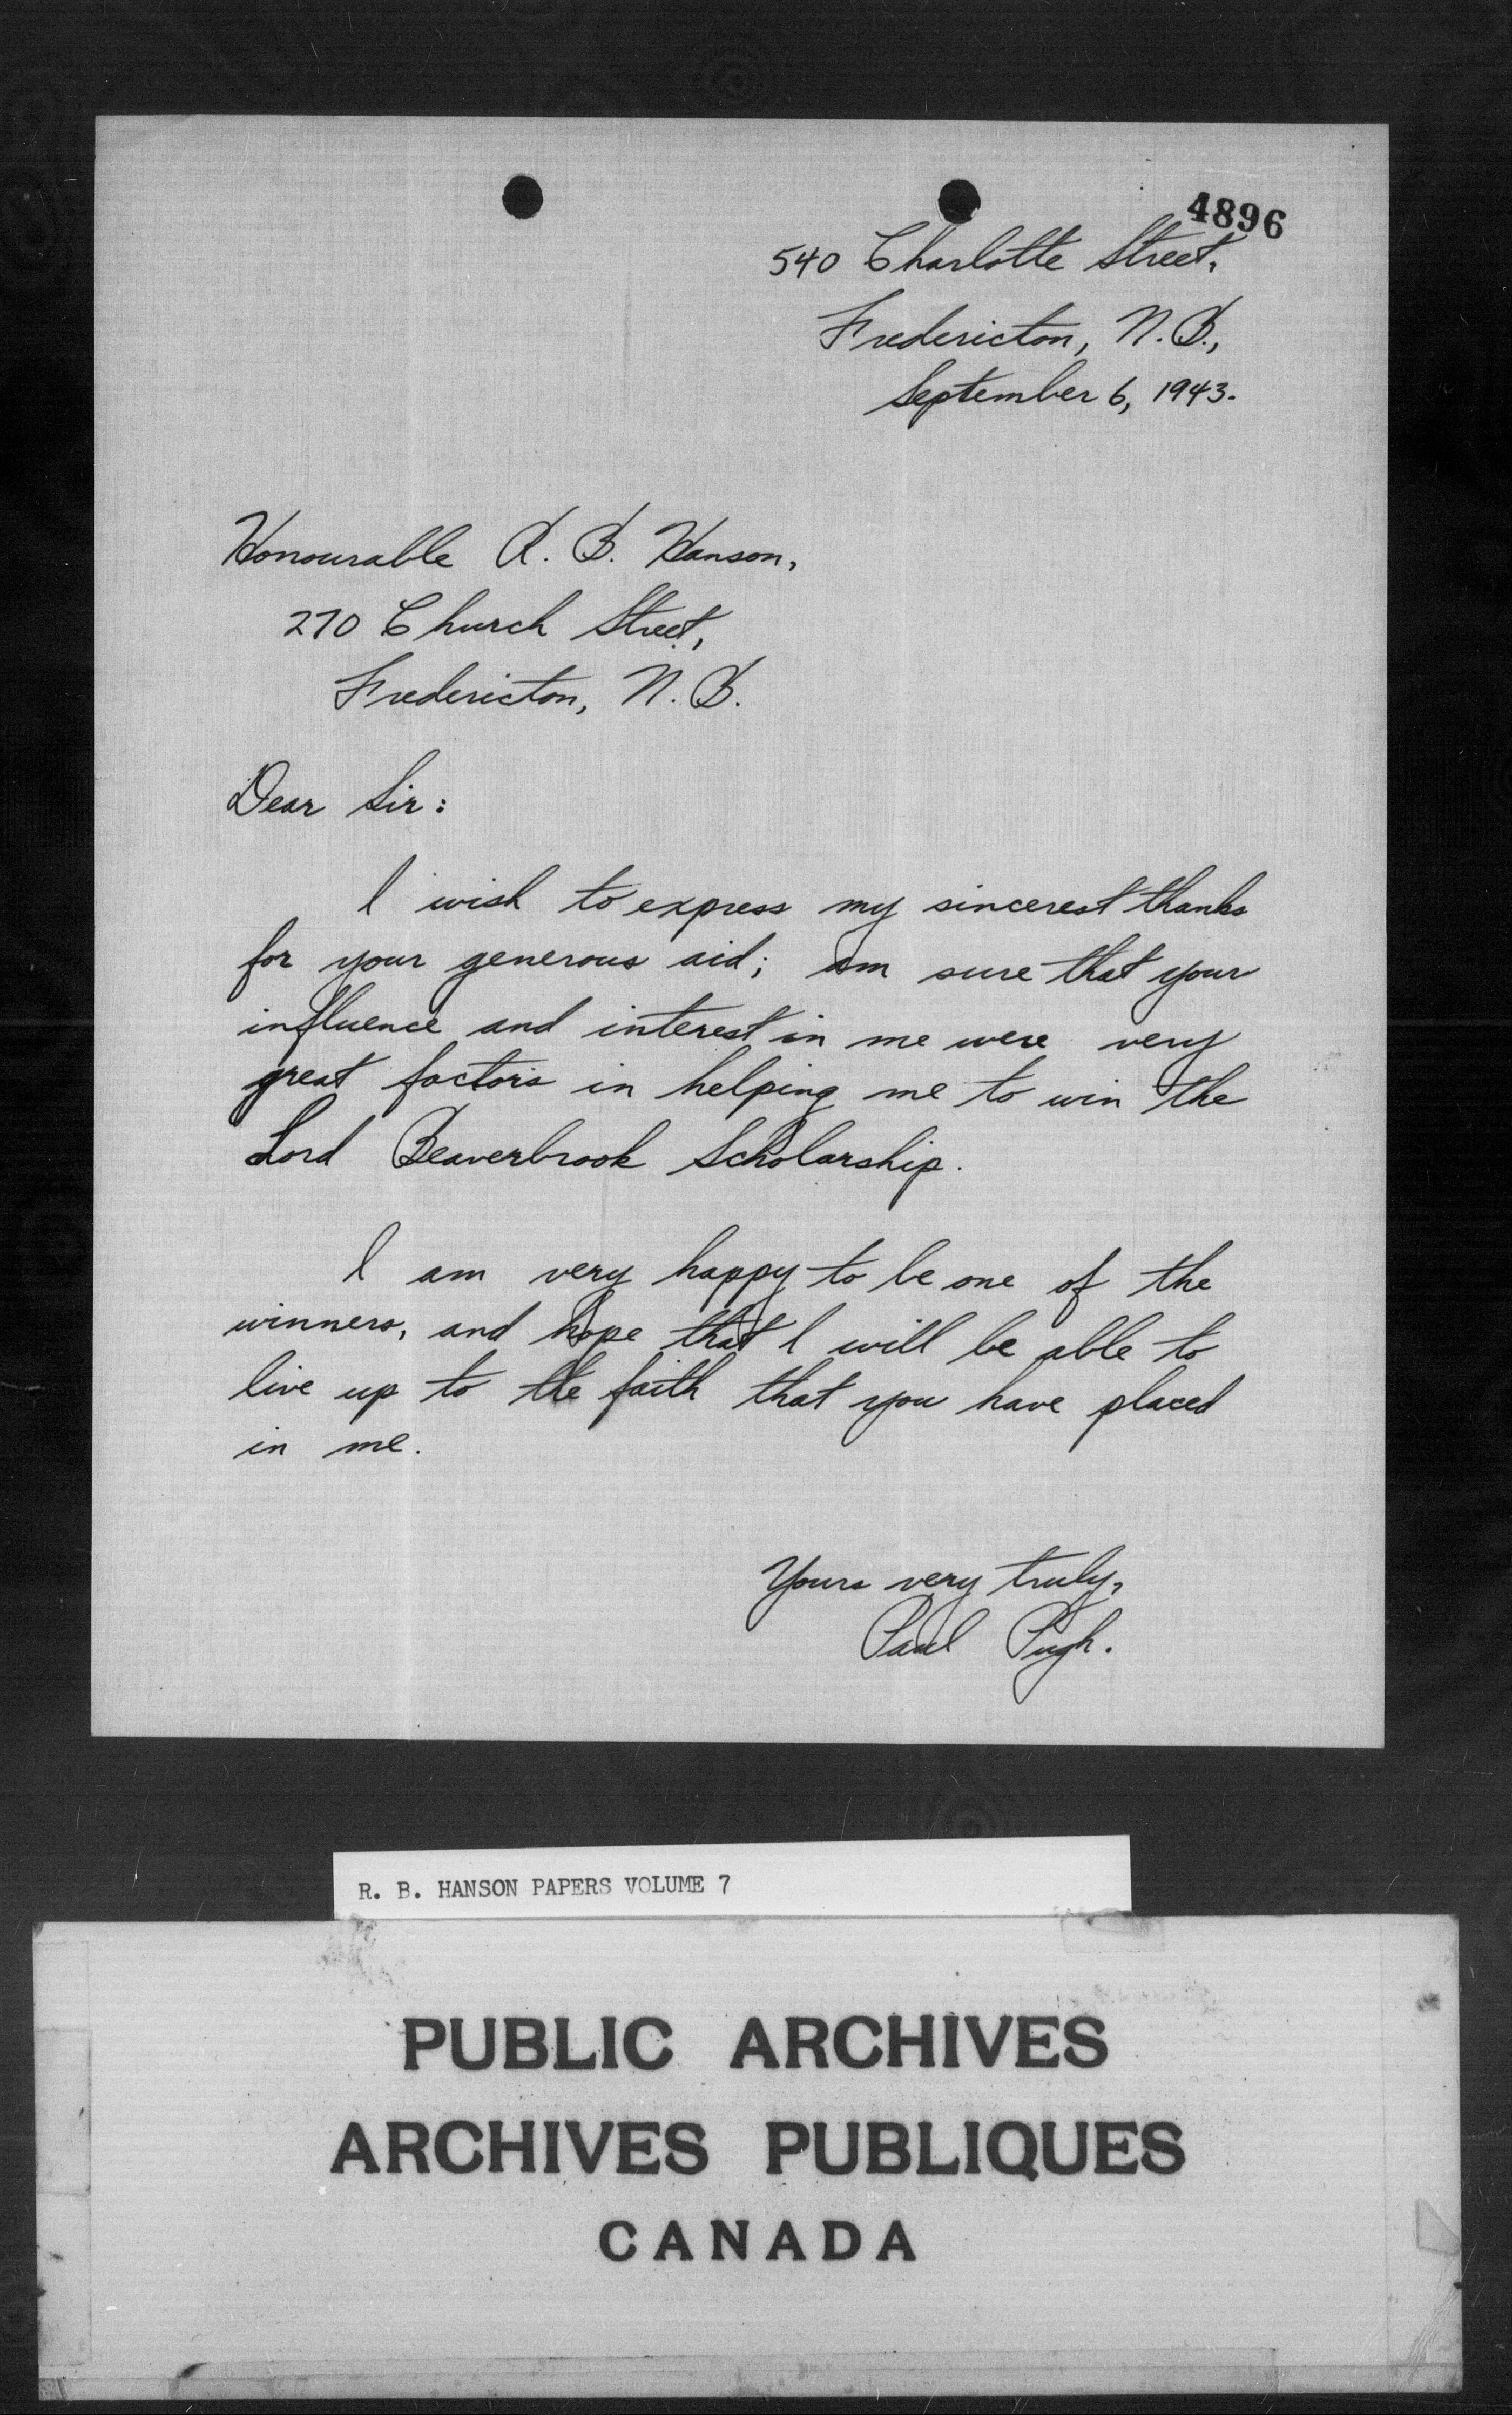 4896
540 Charlotte Street,
Fredericton, N.B.,
September 6, 1943.
Honourable R. B. Hanson,
270 Church Street,
Fredericton, N. B.
Dear Sir:
I wish to express my sincerest thanks
for your generous aid; am sure that your
influence and interest in me were very
great factors in helping me to win the
Lord Beaverbrook Scholarship.
I am very happy to be one of the
winners, and hope that I will be able to
live up to the faith that you have placed
in me.
Yours very truly,
Paul Pugh.
R. B. HANSON PAPERS VOLUME 7
PUBLIC ARCHIVES
ARCHIVES PUBLIQUES
CANADA